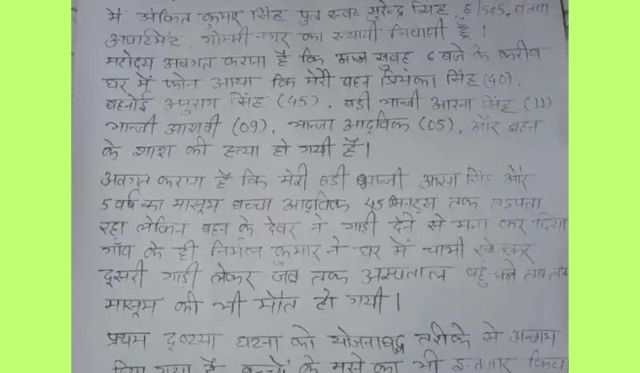 मैं अंकित कुमार सिंह पुत्र स्व० सुरेन्द्र सिंह, 5/505,
अपार्टमेंट, गोमती नगर का स्थायी निवासी हूँ।
महोदय अवगत कराना है कि आज सुबह 6 बजे के करीब
घर में फोन आया कि मेरी बहन प्रियंका सिंह (40),
बहनोई अनुराग सिंह (45), बड़ी भान्जी आरना सिंह (11)
भान्जी आशवी (09), भान्जा आद्विक (05), और बहन
के शाश की हत्या हो गयी है।
अवगत कराना है कि मेरी बड़ी भान्जी आरना सिंह और
5 वर्ष का मासूम बच्चा आद्विक 45 मिनट्स तक तड़पता
रहा लेकिन बहन के देवर ने गाड़ी देने से मना कर दिया
गाँव के ही निर्मल कुमार ने घर में चाभी खोजकर
दूसरी गाड़ी लेकर जब तक अस्पताल पहुचते तब तक
मासूम की भी मौत हो गयी।
प्रथम दृष्टया घटना को योजनाबद्ध तरीके से अन्जाम
दिया गया है, बच्चों के मरने का भी इन्तजार किया